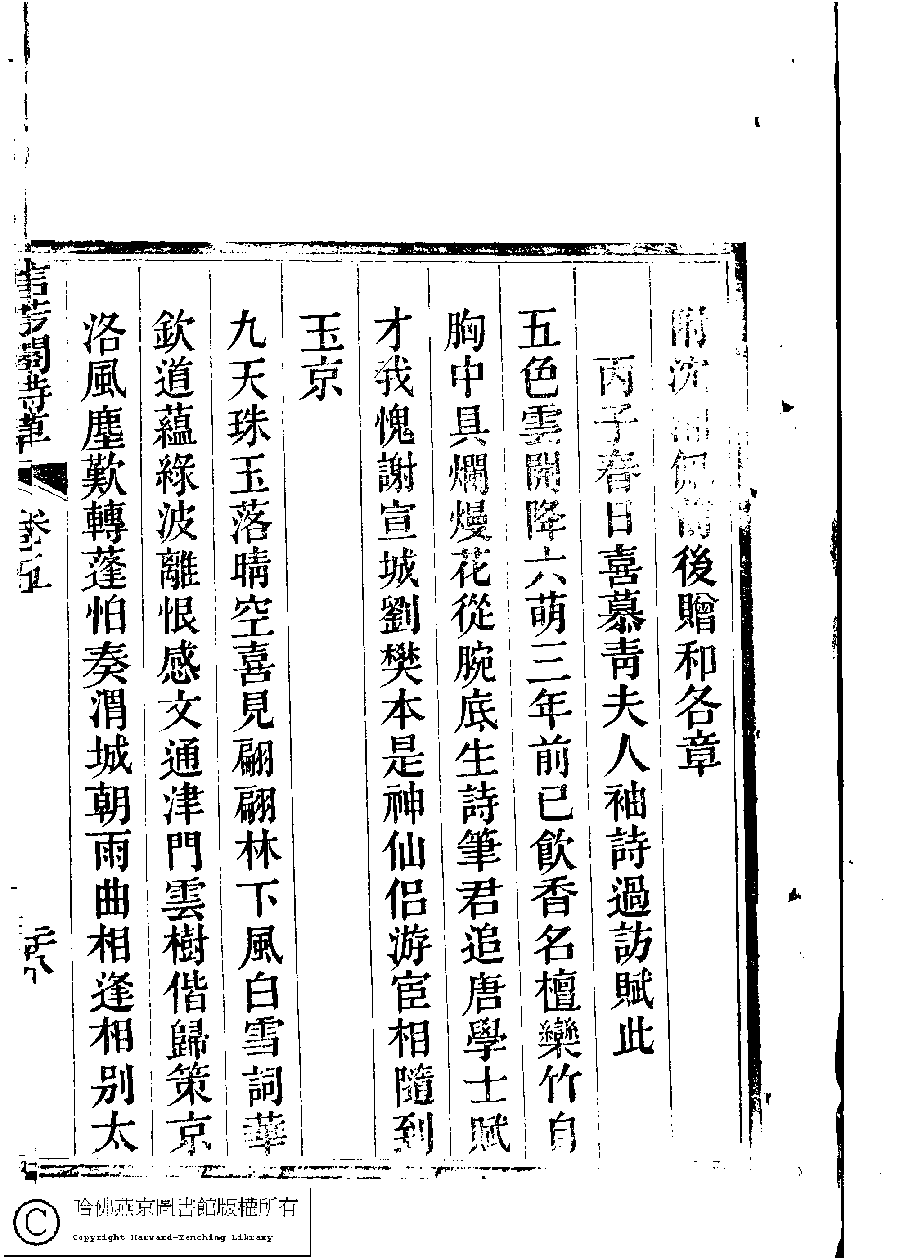 附沈湘佩前後贈和各章
丙子春日喜慕青夫人袖詩過訪賦此
五色雲開降六萌三年前已飲香名檀欒竹自
胸中具爛熳花從腕底生詩筆君追唐學士賦
才我愧謝宣城劉樊本是神仙侶游宦相隨到
玉京
九天珠玉落晴空喜見翩翩林下風白雪詞華
欽道蘊綠波離恨感文通津門雲樹偕歸策京
洛風塵歎轉蓬怕奏渭城朝雨曲相逢相別太
芳閣詩草
卷五
哈佛燕京圖書館版權所有
Copyright Harvard-Yenching Library